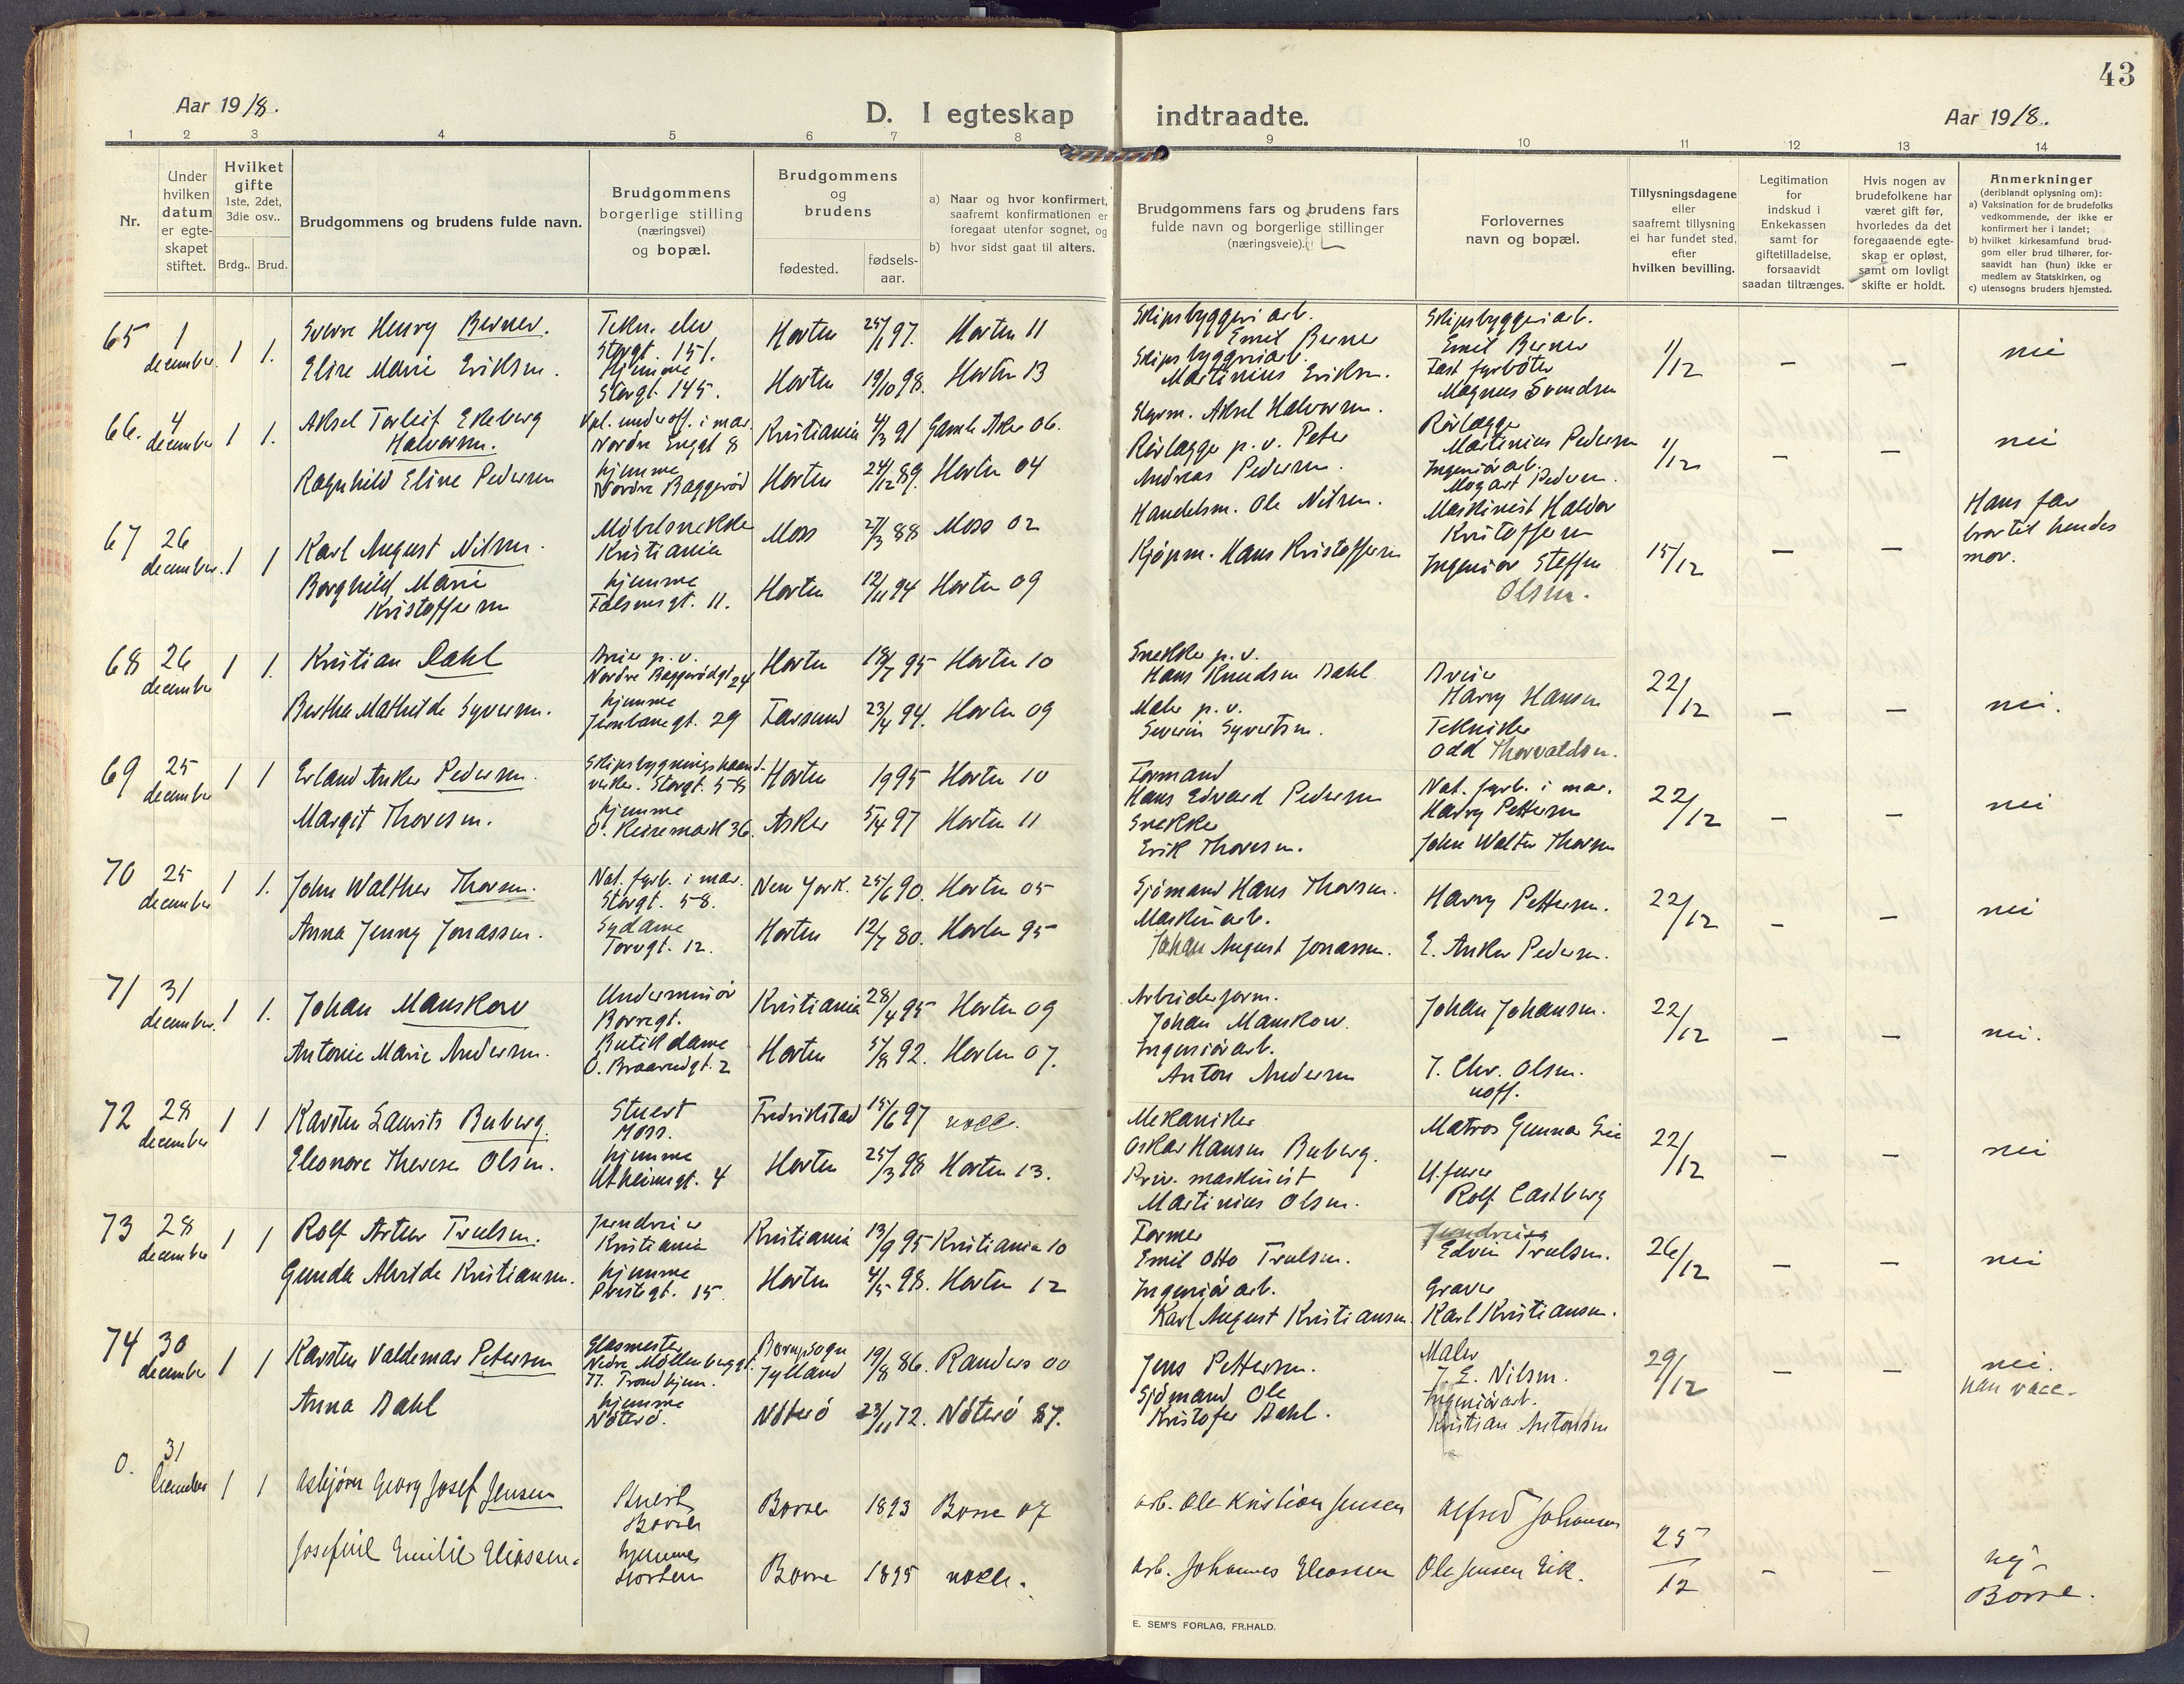 43
Aar 1918.
D. I egteskap indtraadte.
Aar 1918.
1 2 3 4 5 6 7 8 9 10 11 12 13 14
Nr.
Under hvilken datum er egte-skapet stiftet.
Hvilket gifte 1ste, 2det, 3die osv..
Brdg.. Brud.
Brudgommens og brudens fulde navn.
Brudgommens borgerlige stilling (næringsvei) og bopæl.
Brudgommens og brudens
fødested.
fødsels-aar.
a) Naar og hvor konfirmert, saafremt konfirmationen er foregaat utenfor sognet, og
b) hvor sidst gaat til alters.
Brudgommens fars og brudens fars fulde navn og borgerlige stillinger (næringsveie).
Forlovernes navn og bopæl.
Tillysningsdagene eller saafremt tillysning ei har fundet sted, efter hvilken bevilling.
Legitimation for indskud i Enkekassen samt for giftetilladelse, forsaavidt saadan tiltrænges.
Hvis nogen av brudefolkene har været gift før, hvorledes da det foregaaende egte-skap er opløst, samt om lovligt skifte er holdt.
Anmerkninger
(deriblandt oplysning om):
a) Vaksination for de brudefolks vedkommende, der ikke er konfirmert her i landet;
b) hvilket kirkesamfund brud-gom eller brud tilhører, for-saavidt han (hun) ikke er medlem av Statskirken, og
c) utensogns bruders hjemsted.
65 1 december 1 1. Sverre Henry Berner. Tekn. elev Storgt. 151. Horten 25/1 97. Horten 11 Skipsbyggeriarb. Emil Berner Skipsbyggeriarb. Emil Berner 1/12 – – nei
Elise Marie Eriksen. Hjemme Storgt. 145. Horten 19/10 98. Horten 13 Skipsbyggeriarb. Martinius Eriksen. Fast fyrbøter Magnus Svendsen
66. 4 december 1 1. Aksel Torleif Ekeberg Halvorsen. Kpl. underoff. i mar. Nordre Enggt 8 Kristiania 4/3 91 Gamle Aker 06. Styrm. Aksel Halvorsen. Rørlægger Martinius Pedersen 1/12 – – nei
Ragnhild Eline Pedersen hjemme Nordre Baggerød Horten 24/12 89. Horten 04 Rørlægger p. v. Peter Andreas Pedersen. Ingeniørarb. Mozart Pedersen.
67 26 december. 1 1 Karl August Nilsen. Møbelsnekker Kristiania Moss 27/3 88 Moss 02 Handelsm. Ole Nilsen. Maskinist Haldor Kristoffersen 15/12 – – Hans far bror til hendes mor.
Borghild Marie Kristoffersen hjemme Falsensgt. 11. Horten 12/11 94 Horten 09 Kjøpm. Hans Kristoffersen Ingeniør Steffen Olsen.
68 26 december 1 1. Kristian Dahl Dreier p. v. Nordre Baggerødgt 24 Horten 18/7 95 Horten 10 Snekker p. v. Hans Knudsen Dahl Dreier Harry Hansen 22/12 – – nei.
Berthe Mathilde Syversen. hjemme Jernbanegt. 29 Farsund 23/4 94. Horten 09 Maler p. v. Severin Syvertsen. Tekniker Odd Thorvaldsen.
69 25 december 1 1 Erland Anker Pedersen. Skipsbygningshaand-verker. Storgt. 58 Horten 1995 Horten 10 Formand Hans Edvard Pedersen Nat. fyrb. i mar. Harry Pettersen 22/12 – – nei
Margit Thoresen. hjemme Ö. Keisemark 36. Asker 5/4 97 Horten 11 Snekker Erik Thoresen. John Walter Thorsen
70 25 december 1 1. John Walther Thorsen. Nat. fyrb. i mar. Storgt. 58. New York. 25/6 90. Horten 05 Sjömand Hans Thorsen. Harry Pettersen. 22/12 – – nei
Anna Jenny Jonassen. Sydame Torvgt. 12. Horten 12/7 80. Horten 95 Maskinarb. Johan August Jonassen. E. Anker Pedersen.
71 31 december. 1 1. Johan Manskow Underminør Borregt. Kristiania 28/4 95 Horten 09 Arbeiderform. Johan Manskow. Johan Johansen. 22/12 – – nei.
Antonie Marie Andersen. Butikdame Ö. Braarudgt. 2 Horten 5/8 92. Horten 07. Ingeniörarb. Anton Andersen J. Chr. Olsen. uoff.
72 28 december 1 1 Karsten Laurits Buberg. Stuert Moss. Fredrikstad 15/6 97 Mekaniker Oskar Hansen Buberg. Matros Gunnar 22/12 – – nei
Eleonore Therese Olsen. hjemme Utheimsgt. 4 Horten 25/3 98 Horten 13. Priv. maskinist Martinius Olsen. Rolf Castberg
73 28 december 1 1 Rolf Artur Truelsen. Jerndreier Kristiania Kristiania 13/9 95 Kristiania 10 Former Emil Otto Truelsen. Jerndreier Edvin Truelsen. 26/12 – – nei
Gunda Alvilde Kristiansen. hjemme Prestegt. 15 Horten 4/5 98. Horten 12 Ingeniörarb. Karl August Kristiansen. Graver Karl Kristiansen.
74 30 december 1 1 Karsten Valdemar Petersen Glasmester Nedre Møllenberggt. 77. Trondhjem. Borup sogn Jylland 19/8 86. Randers 00 Jens Pettersen. Maler J. E. Nilsen. 29/12 – – nei. han vacc.
Anna Dahl hjemme Nøterø. Nøterø 23/11 72. Nøterø 87. Sjömand Ole Kristofer Dahl. Ingeniörarb. Kristian Antonsen
0. 31 december 1 1 Asbjørn Georg Josef Jensen Stuert Borre Borre 1893 Borre 07 arb. Ole Kristian Jensen Alfred Johansen 25/12 – – nej – Borre.
Josefine Emilie Eliassen. hjemme Horten Borre 1895 arb. Johannes Eliassen Ole Jensen Eik.
E. SEM'S FORLAG, FR.HALD.